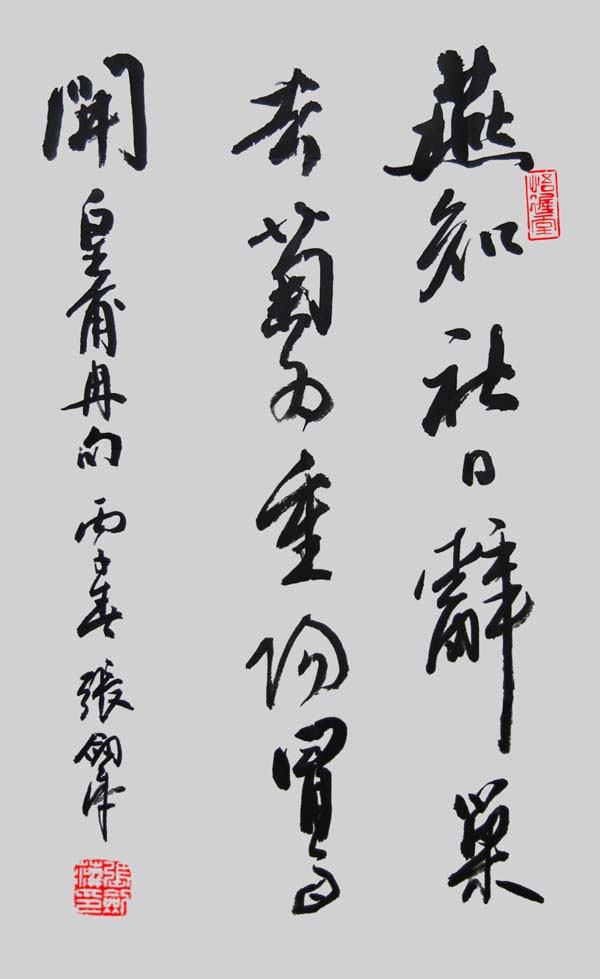 燕知社日辭巢
去菊為重陽冒雨
開
皇甫冉句 丙子春 張劍